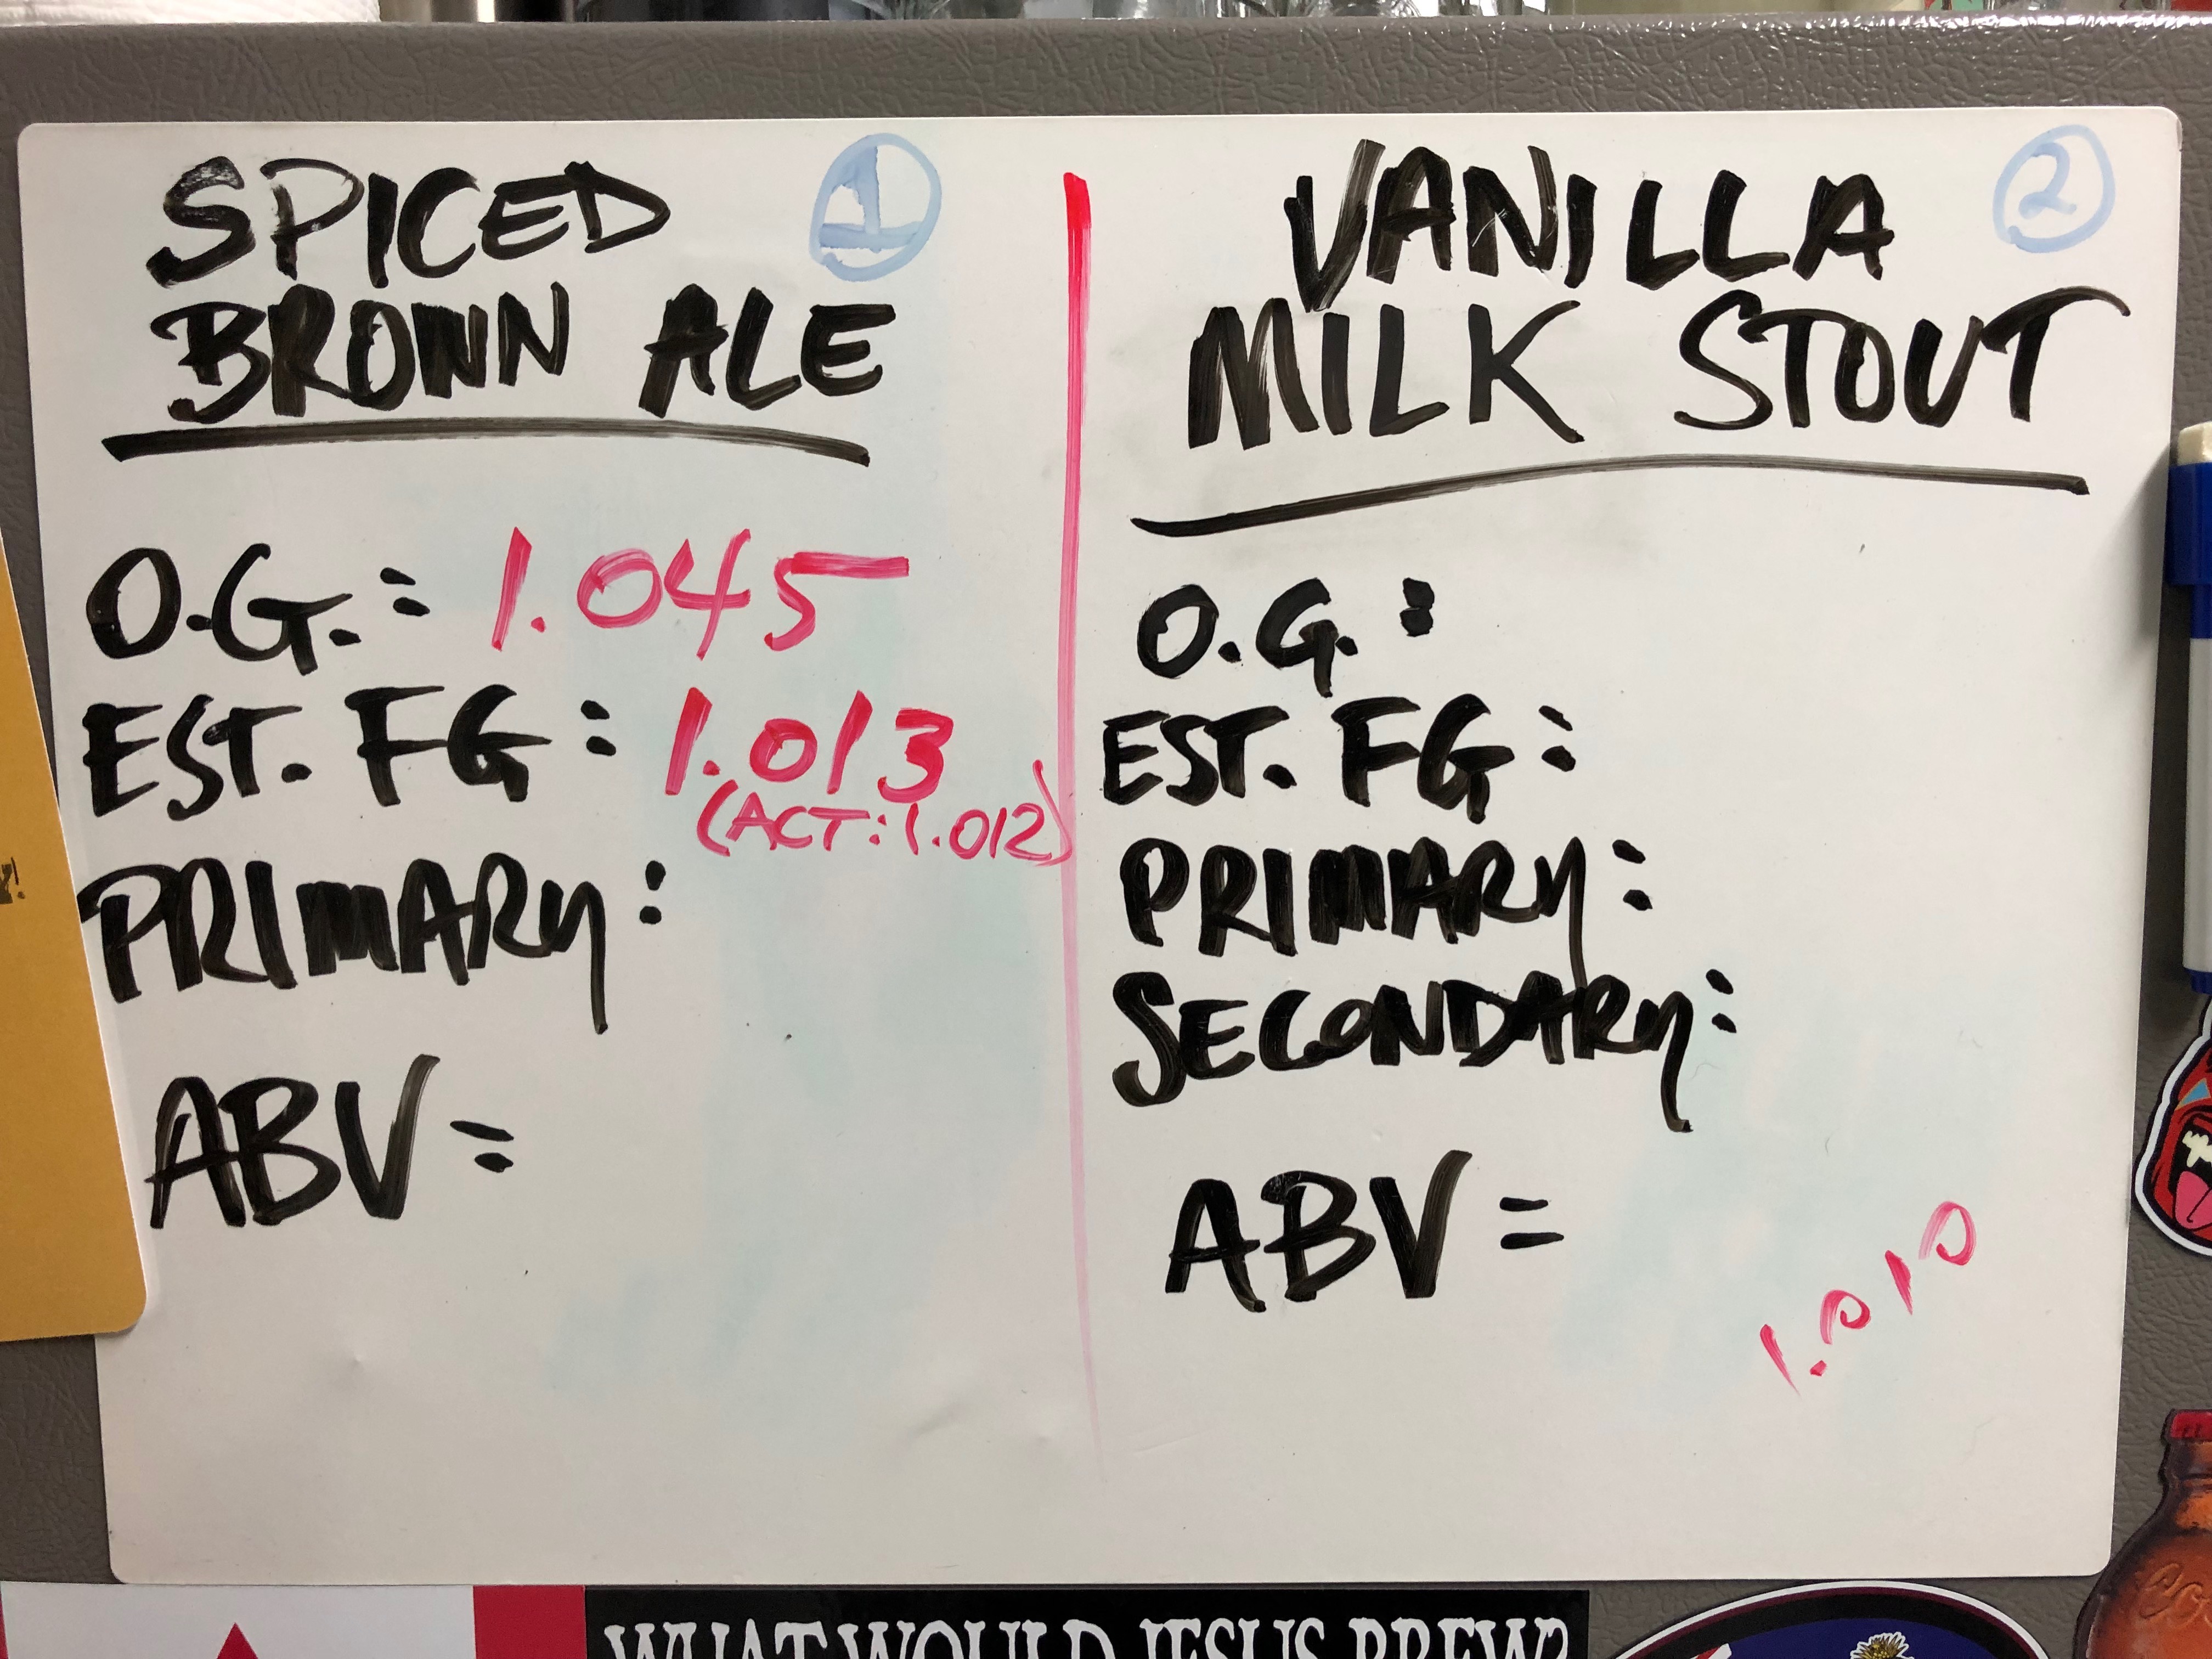 SPICED
BROWN ALE
1
O.G.: 1.045
EST. FG: 1.013
(ACT: 1.012)
PRIMARY:
ABV =
VANILLA
MILK STOUT
2
O.G.:
EST. FG:
PRIMARY:
SECONDARY:
ABV =
1.010
WHAT WOULD JESUS BREW?